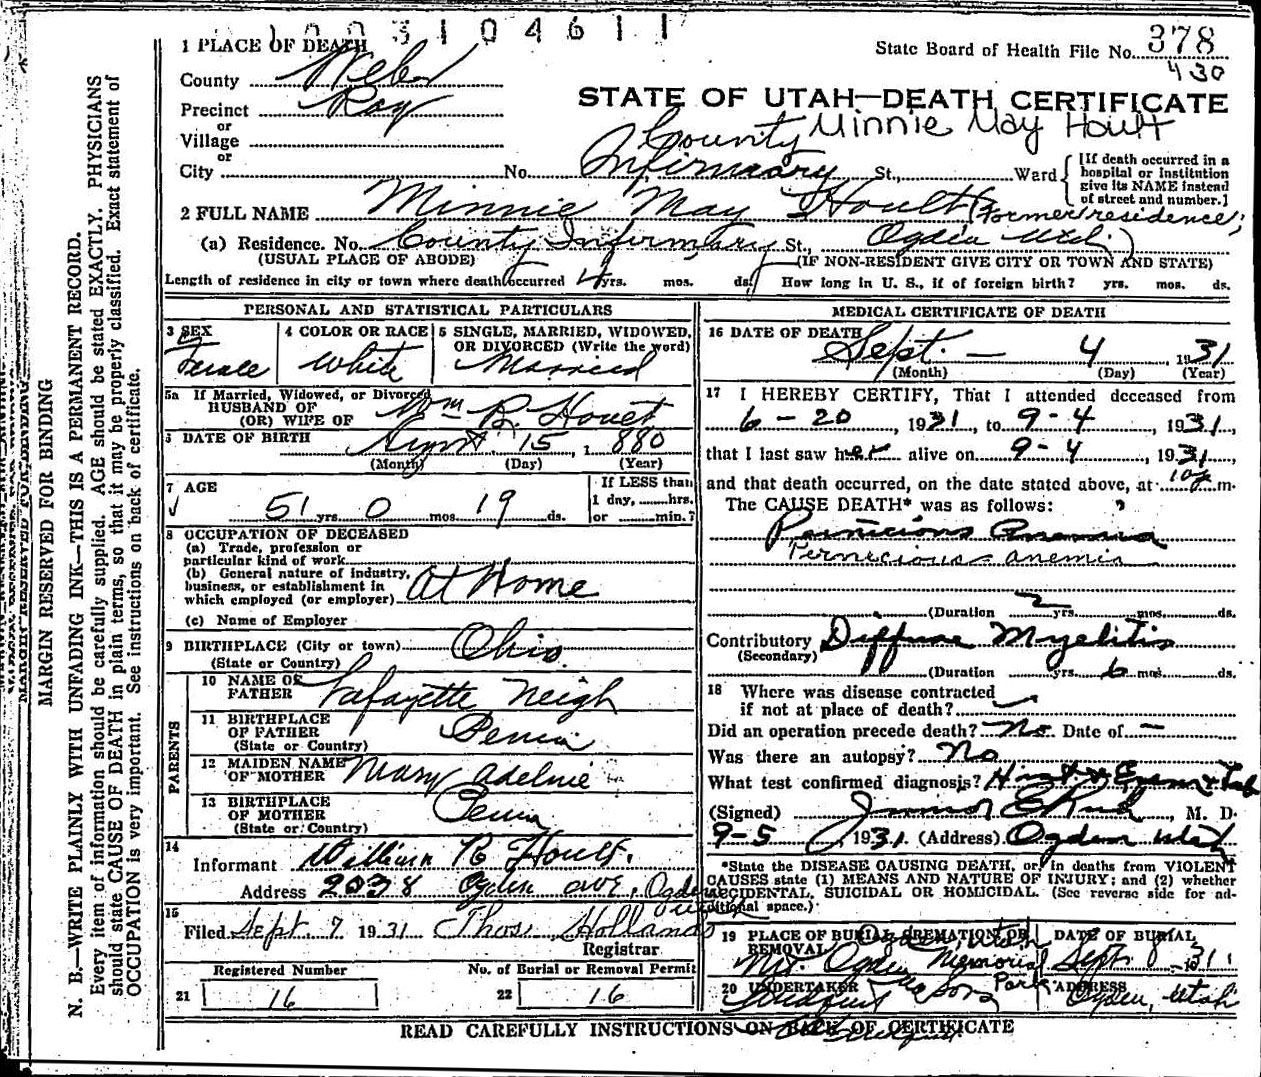 1003104611
1 PLACE OF DEATH
State Board of Health File No. 378
430
County Weber
Precinct Roy
STATE OF UTAH—DEATH CERTIFICATE
Minnie May Hoult
or
Village
or
City No. County Infirmary St., Ward [If death occurred in a hospital or institution give its NAME instead of street and number.]
2 FULL NAME Minnie May Hoult
(Former residence;
(a) Residence. No. County Infirmary St., Ogden Utah)
(USUAL PLACE OF ABODE) (IF NON-RESIDENT GIVE CITY OR TOWN AND STATE)
Length of residence in city or town where death occurred 4 yrs. mos. ds. How long in U. S., if of foreign birth? yrs. mos. ds.
PERSONAL AND STATISTICAL PARTICULARS
3 SEX
Female
4 COLOR OR RACE
White
5 SINGLE, MARRIED, WIDOWED,
OR DIVORCED (Write the word)
Married
5a If Married, Widowed, or Divorced
HUSBAND OF
(OR) WIFE OF Wm R. Hoult
6 DATE OF BIRTH August 15, 1880
(Month) (Day) (Year)
7 AGE
51 yrs. 0 mos. 19 ds.
If LESS than
1 day, hrs.
or min.?
8 OCCUPATION OF DECEASED
(a) Trade, profession or
particular kind of work
(b) General nature of industry,
business, or establishment in
which employed (or employer) At Home
(c) Name of Employer
9 BIRTHPLACE (City or town) Ohio.
(State or Country)
PARENTS
10 NAME OF
FATHER Lafayette Neigh
11 BIRTHPLACE
OF FATHER Penn
(State or Country)
12 MAIDEN NAME
OF MOTHER Mary Adelnie
13 BIRTHPLACE
OF MOTHER Penn
(State or Country)
14
Informant William R Hoult.
Address 2038 Ogden Ave, Ogden
Utah
15
Filed Sept. 7 1931 Thos. Holland
Registrar.
Registered Number No. of Burial or Removal Permit
21 16 22 16
MEDICAL CERTIFICATE OF DEATH
16 DATE OF DEATH
Sept. — 4, 1931
(Month) (Day) (Year)
17 I HEREBY CERTIFY, That I attended deceased from
6-20, 1931, to 9-4, 1931,
that I last saw her alive on 9-4, 1931,
and that death occurred, on the date stated above, at 10 m.
The CAUSE DEATH* was as follows:
Pernicious Anemia
Pernecious anemia
(Duration 2 yrs. mos. ds.
Contributory Diffuse Myelitis
(Secondary)
(Duration yrs. 6 mos. ds.
18 Where was disease contracted
if not at place of death?
Did an operation precede death? No. Date of —
Was there an autopsy? No
What test confirmed diagnosis? Hist & Exam & Lab
(Signed) M. D.
9-5, 1931. (Address) Ogden Utah
*State the DISEASE CAUSING DEATH, or in deaths from VIOLENT
CAUSES state (1) MEANS AND NATURE OF INJURY; and (2) whether
ACCIDENTAL, SUICIDAL OR HOMICIDAL. (See reverse side for ad-
ditional space.)
19 PLACE OF BURIAL, CREMATION, OR
REMOVAL Ogden, Utah
Mt. Ogden Memorial
Park
DATE OF BURIAL
Sept 8 - 31
20 UNDERTAKER
& Sons
ADDRESS
Ogden, Utah
READ CAREFULLY INSTRUCTIONS ON BACK OF CERTIFICATE
MARGIN RESERVED FOR BINDING
N. B.—WRITE PLAINLY WITH UNFADING INK—THIS IS A PERMANENT RECORD.
Every item of information should be carefully supplied. AGE should be stated EXACTLY. PHYSICIANS
should state CAUSE OF DEATH in plain terms, so that it may be properly classified. Exact statement of
OCCUPATION is very important. See instructions on back of certificate.